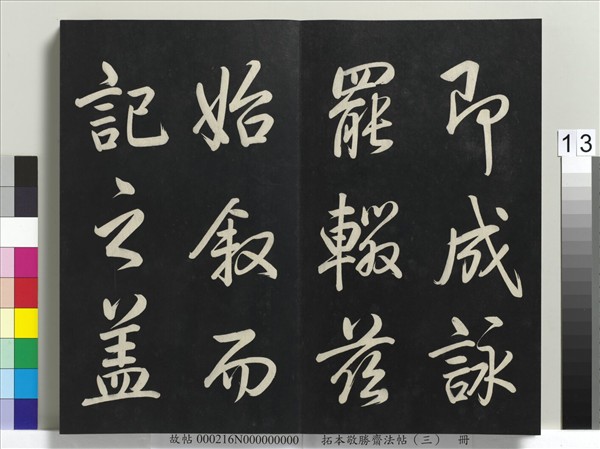 即成詠
罷輟茲
始叙而
記之盖
13
故帖 000216N000000000 拓本敬勝齋法帖（三） 冊